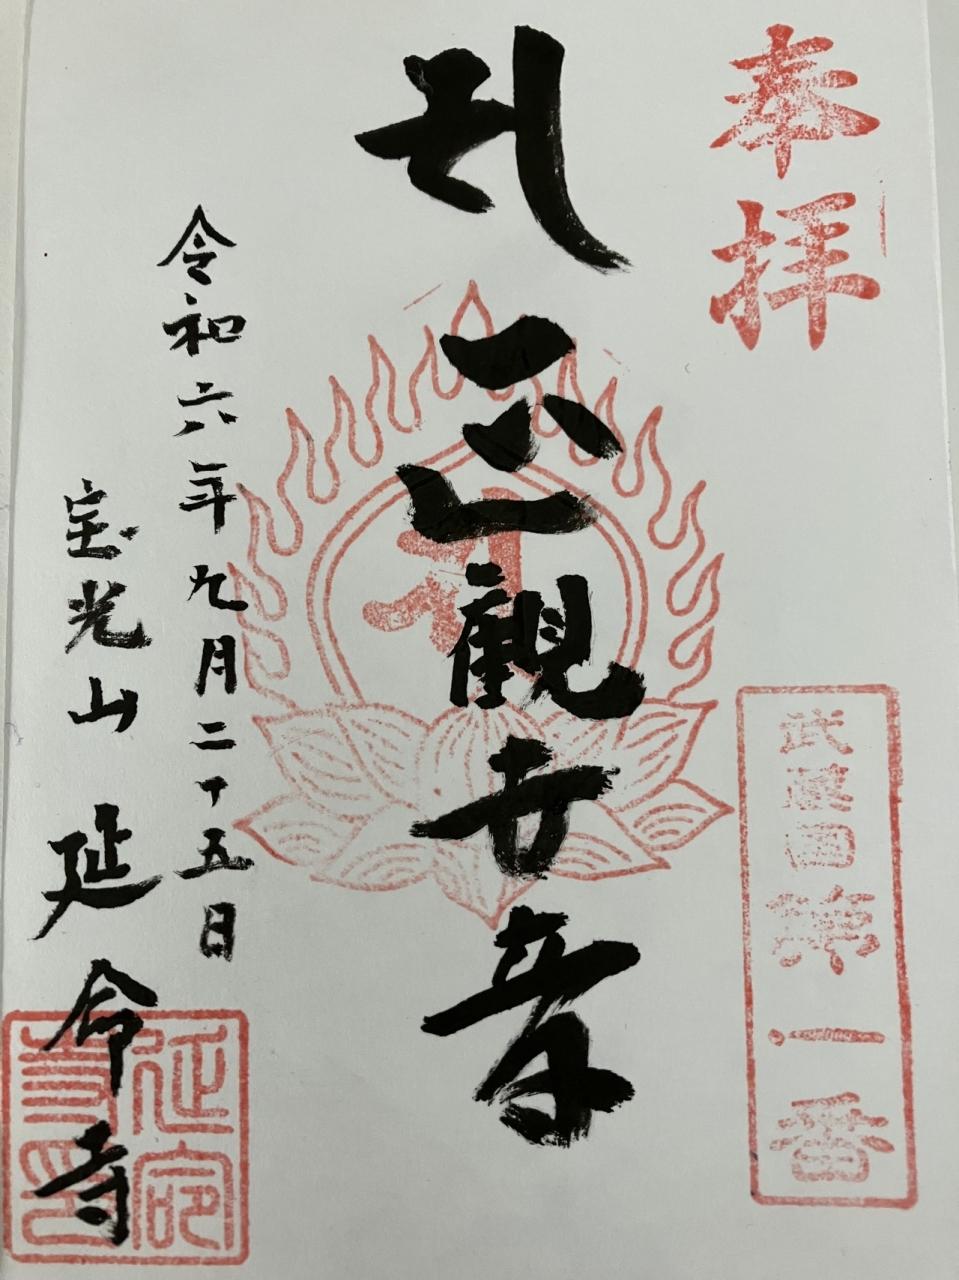 奉拝
武蔵国第一番
観世音
令和六年九月二十五日
宝光山 延命寺
延命
寺印